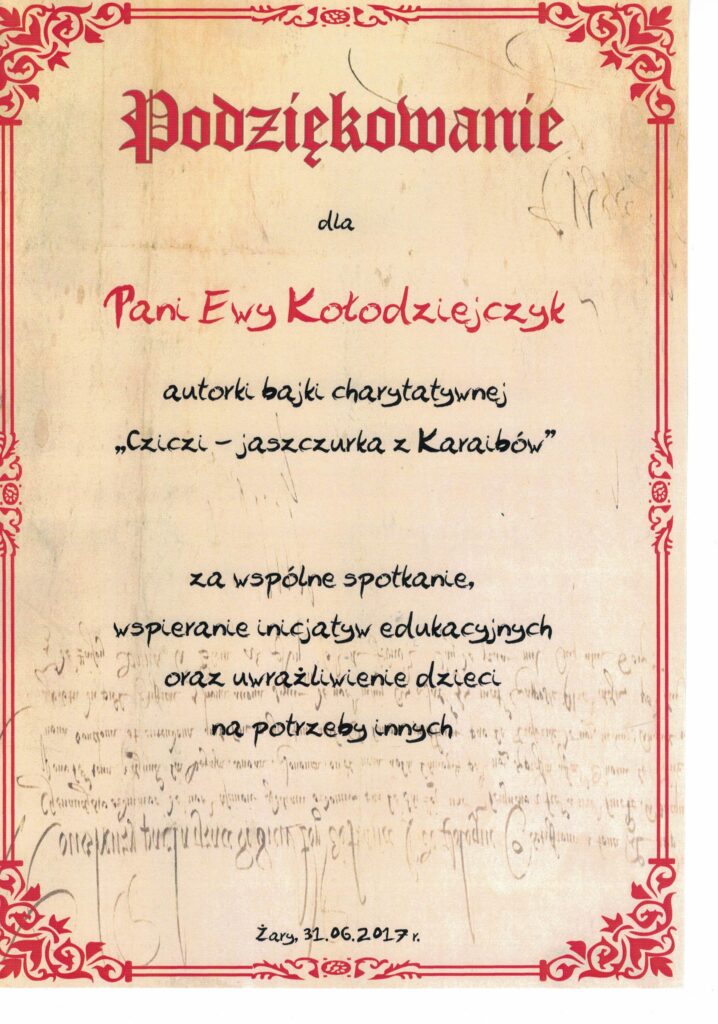 Podziękowanie
dla
Pani Ewy Kołodziejczyk
autorki bajki charytatywnej
„Cziczi – jaszczurka z Karaibów”
za wspólne spotkanie,
wspieranie inicjatyw edukacyjnych
oraz uwrażliwienie dzieci
na potrzeby innych
Żary, 31.06.2017 r.